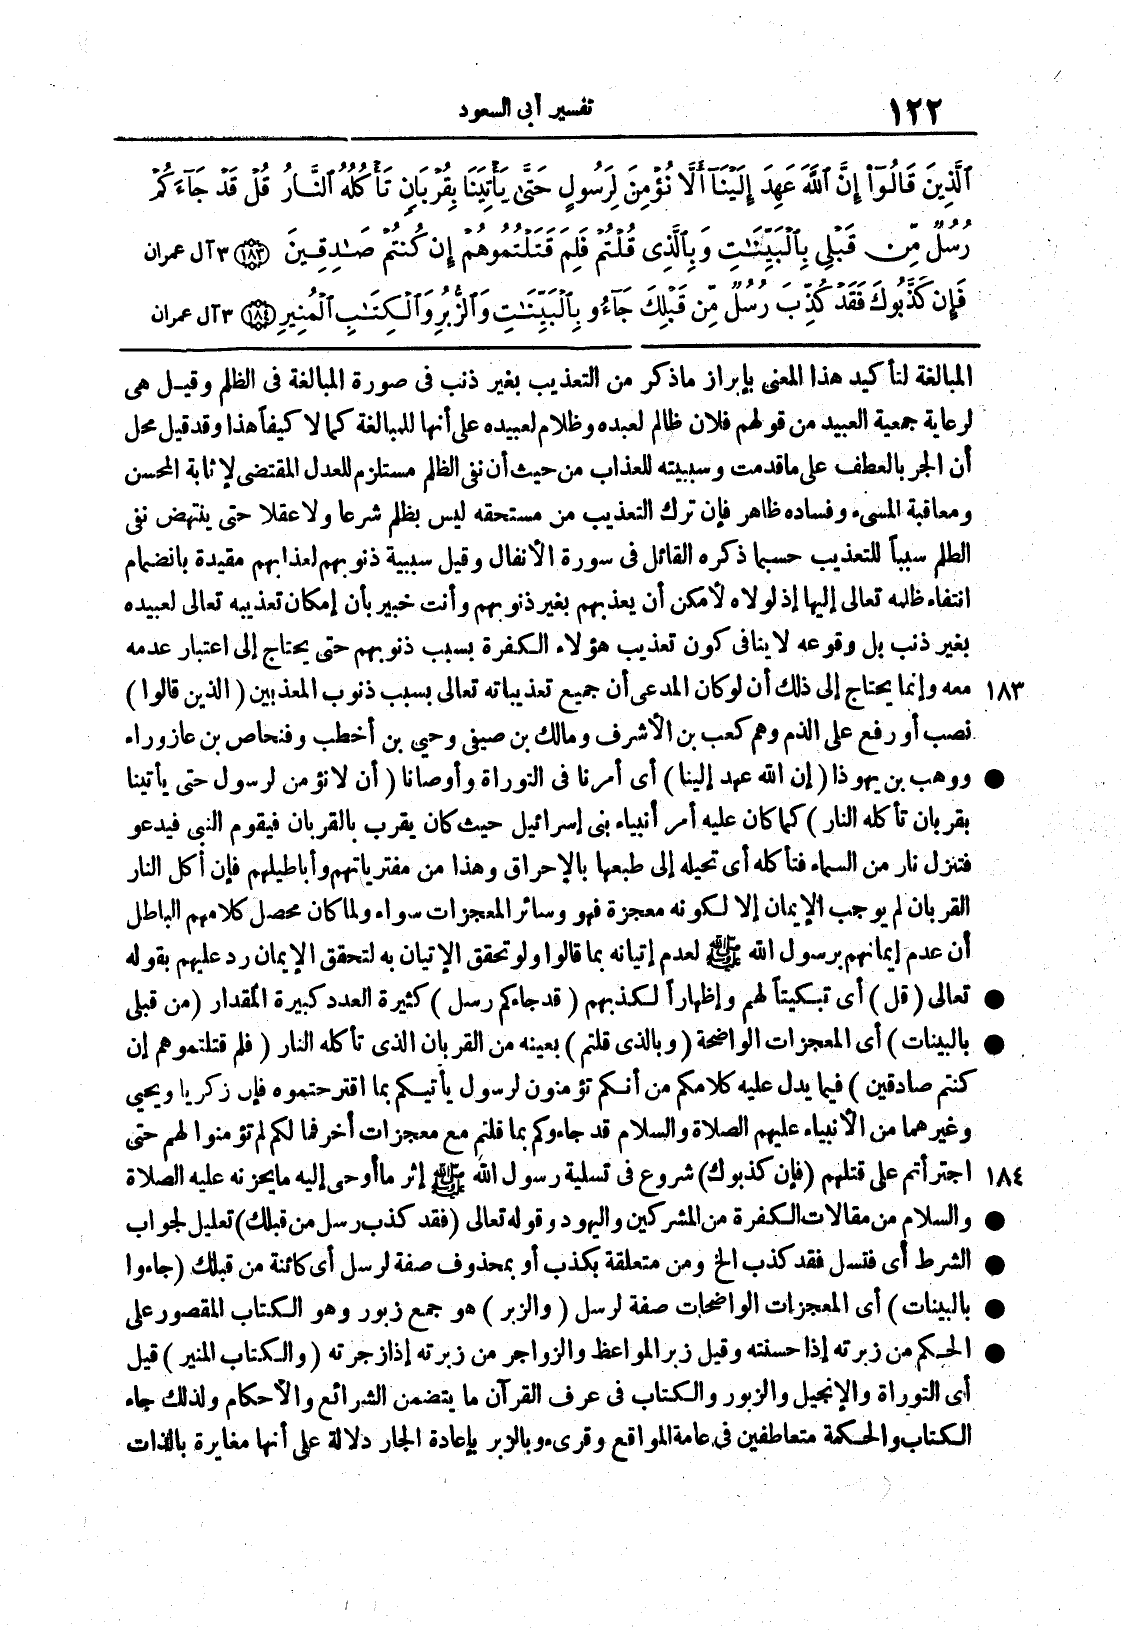 ١٢٢ تفسير أبى السعود
ٱلَّذِينَ قَالُوٓا۟ إِنَّ ٱللَّهَ عَهِدَ إِلَيْنَآ أَلَّا نُؤْمِنَ لِرَسُولٍ حَتَّىٰ يَأْتِيَنَا بِقُرْبَانٍ تَأْكُلُهُ ٱلنَّارُ قُلْ قَدْ جَآءَكُمْ
رُسُلٌ مِّن قَبْلِى بِٱلْبَيِّنَٰتِ وَبِٱلَّذِى قُلْتُمْ فَلِمَ قَتَلْتُمُوهُمْ إِن كُنتُمْ صَٰدِقِينَ ١٨٣ ٣ آل عمران
فَإِن كَذَّبُوكَ فَقَدْ كُذِّبَ رُسُلٌ مِّن قَبْلِكَ جَآءُو بِٱلْبَيِّنَٰتِ وَٱلزُّبُرِ وَٱلْكِتَٰبِ ٱلْمُنِيرِ ١٨٤ ٣ آل عمران
المبالغة لتأكيد هذا المعنى بإبراز ماذكر من التعذيب بغير ذنب فى صورة المبالغة فى الظلم وقيل هى
لرعاية جمعية العبيد من قولهم فلان ظالم لعبده وظلام لعبيده على أنها للمبالغة كما لا كيفاً هذا وقد قيل محل
أن الجر بالعطف على ماقدمت وسببيته للعذاب من حيث أن نفى الظلم مستلزم للعدل المقتضى لإثابة المحسن
ومعاقبة المسىء وفساده ظاهر فإن ترك التعذيب من مستحقه ليس بظلم شرعا ولا عقلا حتى ينتهض نفى
الظلم سبباً للتعذيب حسبما ذكره القائل فى سورة الأنفال وقيل سببية ذنوبهم لعذابهم مقيدة بانضمام
انتفاء ظلمه تعالى إليها إذ لولاه لأمكن أن يعذبهم بغير ذنوبهم وأنت خبير بأن إمكان تعذيبه تعالى لعبيده
بغير ذنب بل وقوعه لا ينافى كون تعذيب هؤلاء الكفرة بسبب ذنوبهم حتى يحتاج إلى اعتبار عدمه
١٨٣ معه وإنما يحتاج إلى ذلك أن لو كان المدعى أن جميع تعذيباته تعالى بسبب ذنوب المعذبين ( الذين قالوا )
نصب أو رفع على الذم وهم كعب بن الأشرف ومالك بن صيفى وحيي بن أخطب وفنحاص بن عازوراء
● ووهب بن يهوذا ( إن الله عهد إلينا ) أى أمرنا فى التوراة وأوصانا ( أن لا نؤمن لرسول حتى يأتينا
بقربان تأكله النار ) كما كان عليه أمر أنبياء بنى إسرائيل حيث كان يقرب بالقربان فيقوم النبى فيدعو
فتنزل نار من السماء فتأكله أى تحيله إلى طبعها بالإحراق وهذا من مفترياتهم وأباطيلهم فإن أكل النار
القربان لم يوجب الإيمان إلا لكونه معجزة فهو وسائر المعجزات سواء ولما كان محصل كلامهم الباطل
أن عدم إيمانهم برسول الله ﷺ لعدم إتيانه بما قالوا ولو تحقق الإتيان به لتحقق الإيمان رد عليهم بقوله
● تعالى ( قل ) أى تبكيتاً لهم وإظهاراً لكذبهم ( قد جاءكم رسل ) كثيرة العدد كبيرة المقدار ( من قبلى
● بالبينات ) أى المعجزات الواضحة ( وبالذى قلتم ) بعينه من القربان الذى تأكله النار ( فلم قتلتموهم إن
كنتم صادقين ) فيما يدل عليه كلامكم من أنكم تؤمنون لرسول يأتيكم بما اقترحتموه فإن زكريا ويحيي
وغيرهما من الأنبياء عليهم الصلاة والسلام قد جاءوكم بما قلتم مع معجزات أخر فما لكم لم تؤمنوا لهم حتى
١٨٤ اجترأتم على قتلهم ( فإن كذبوك ) شروع فى تسلية رسول الله ﷺ إثر ما أوحى إليه مايحزنه عليه الصلاة
● والسلام من مقالات الكفرة من المشركين واليهود وقوله تعالى ( فقد كذب رسل من قبلك ) تعليل لجواب
● الشرط أى فتسل فقد كذب الخ ومن متعلقة بكذب أو بمحذوف صفة لرسل أى كائنة من قبلك ( جاءوا
● بالبينات ) أى المعجزات الواضحات صفة لرسل ( والزبر ) هو جمع زبور وهو الكتاب المقصور على
● الحكم من زبرته إذا حسنته وقيل زبر المواعظ والزواجر من زبرته إذا زجرته ( والكتاب المنير ) قيل
أى التوراة والإنجيل والزبور والكتاب فى عرف القرآن ما يتضمن الشرائع والأحكام ولذلك جاء
الكتاب والحكمة متعاطفين فى عامة المواقع وقرىء وبالزبر بإعادة الجار دلالة على أنها مغايرة بالذات